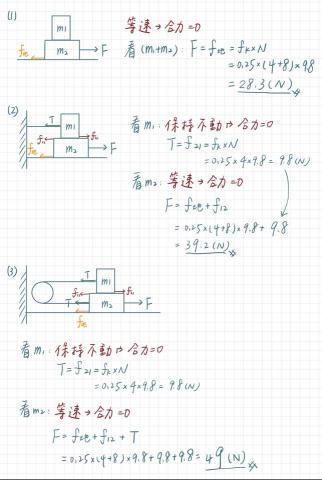 (1)
m₁
m₂
f地
F
等速→合力=0
看(m₁+m₂): F = f地 = fₖ×N
= 0.25×(4+8)×9.8
= 28.3(N)
(2)
T
m₁
f₂₁
f₁₂
m₂
f地
F
看m₁: 保持不動→合力=0
T = f₂₁ = fₖ×N
= 0.25×4×9.8 = 9.8(N)
看m₂: 等速→合力=0
F = f地+f₁₂
= 0.25×(4+8)×9.8 + 9.8
= 39.2(N)
(3)
T
m₁
f₂₁
f₁₂
T
m₂
F
f地
看m₁: 保持不動→合力=0
T = f₂₁ = fₖ×N
= 0.25×4×9.8 = 9.8(N)
看m₂: 等速→合力=0
F = f地+f₁₂ + T
= 0.25×(4+8)×9.8+9.8+9.8 = 49(N)